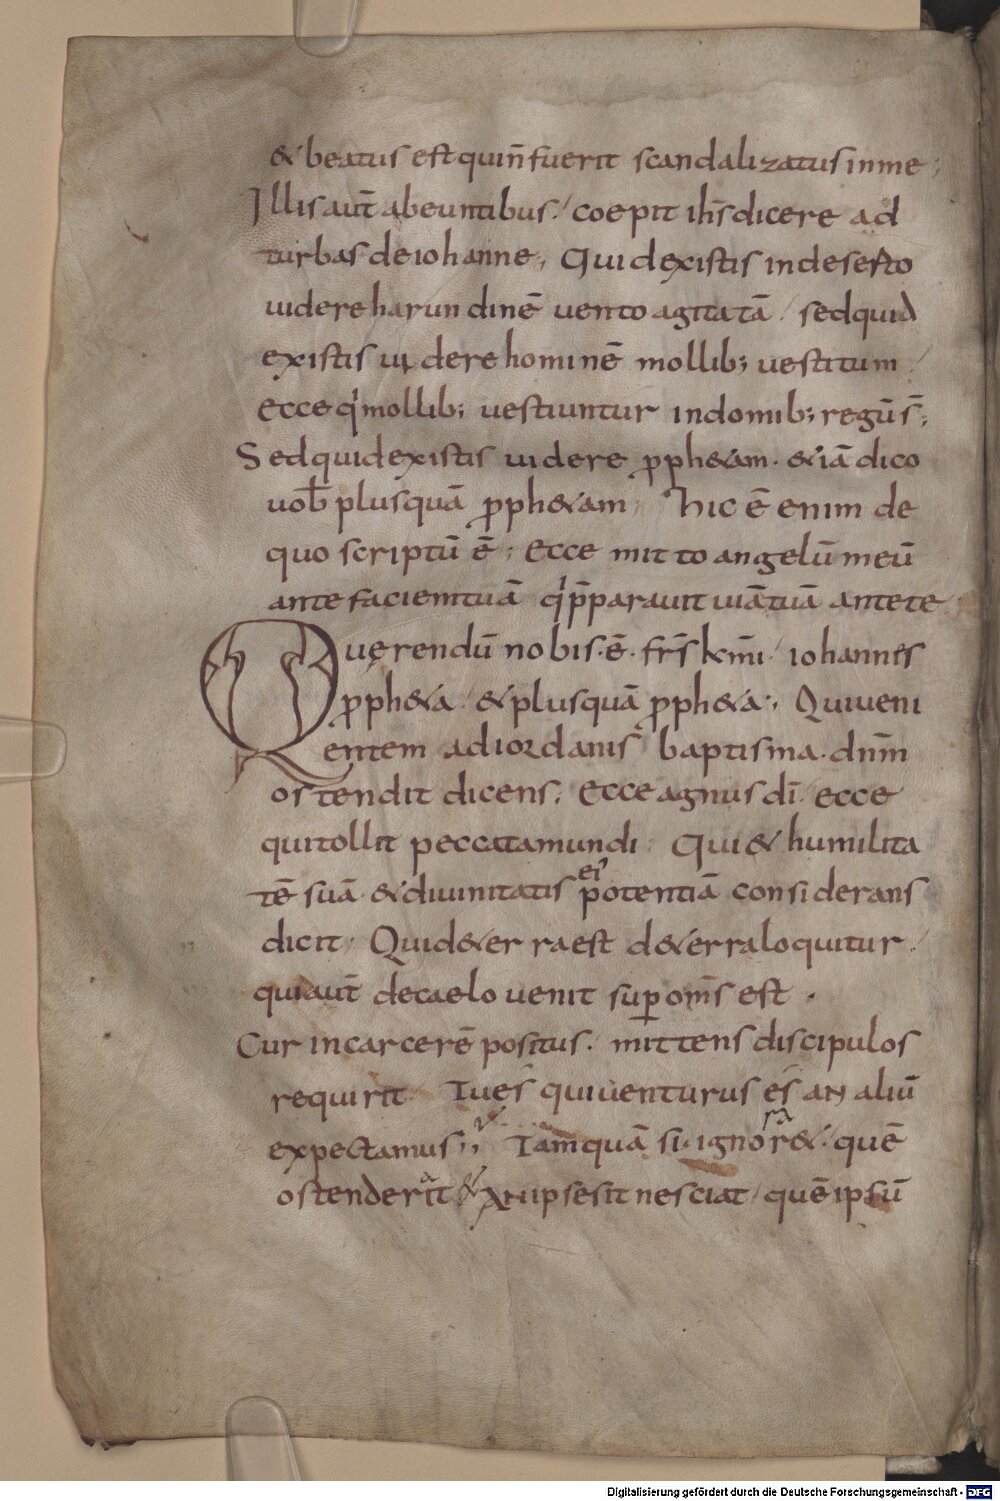 & beatus est qui n̄ fuerit scandalizatus in me;
Illis aut̄ abeuntibus. coepit ih̄s dicere ad
turbas de iohanne; Quid existis in deserto
uidere harundinē uento agitatā / sed quid
existis uidere hominē mollib; uestitum /
Ecce q'mollib; uestiuntur in domib; regū s̄;
Sed quid existis uidere ꝓph&am. &iā dico
uob̄ plus quā ꝓph&am; Hic ē enim de
quo scriptū ē; Ecce mitto angelū meū
ante faciem tuā q'p̄parauit uiā tuā ante te
Querendū nobis. ē. fr̄s km̄i / iohannes
ꝓph&a / & plus quā ꝓph&a; Qui ueni
entem ad iordanis baptisma. dnm̄
ostendit dicens. Ecce agnus dī. ecce
qui tollit peccata mundi. Qui & humilita
tē suā. & diuinitatis ei' potentiā considerans
dicit; Qui de terra est de terra loquitur /
qui aut̄ de caelo uenit suꝑ om̄s est.
Cur in carcerē positus. mittens discipulos
requirit. Tu es qui uenturus es an aliū
expectamus; Tamquā si ignor& ra quē
ostenderit a & an ipse sit nesciat / quē ipsū
Digitalisierung gefördert durch die Deutsche Forschungsgemeinschaft - DFG